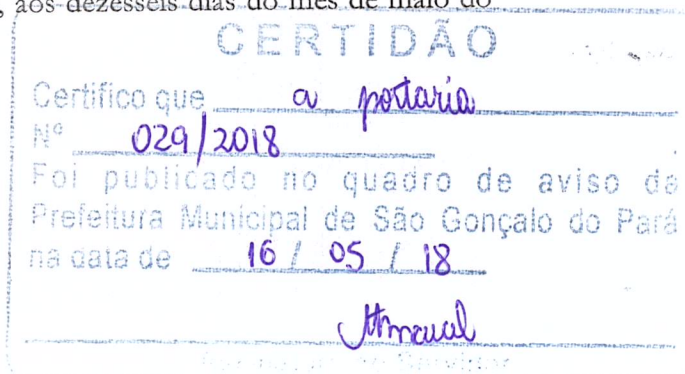 , aos dezesseis dias do mês de maio do
CERTIDÃO
Certifico que a portaria
Nº 029/2018
Foi publicado no quadro de aviso da
Prefeitura Municipal de São Gonçalo do Pará
na data de 16 / 05 / 18
Servidor